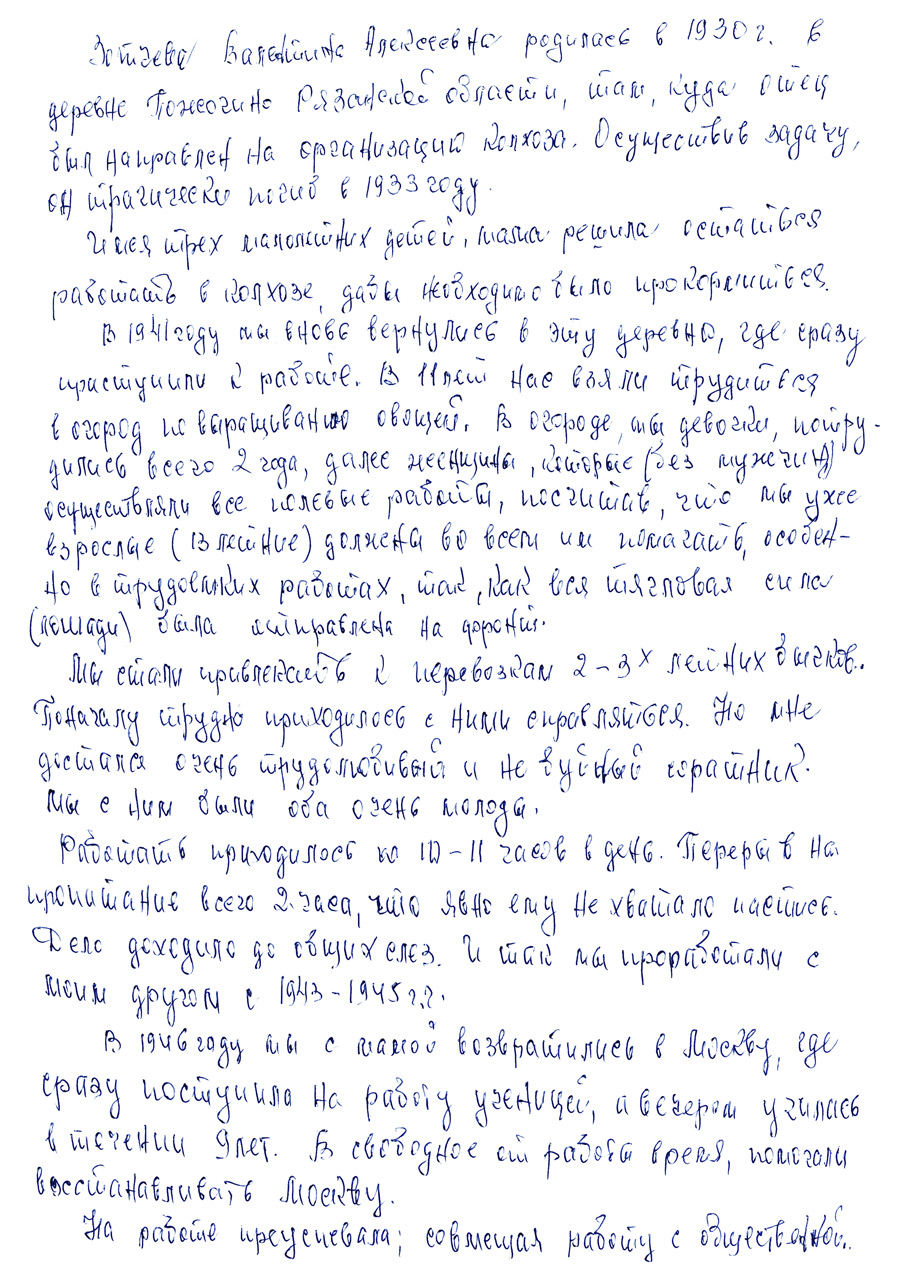 Валентина Алексеевна родилась в 1930г. в
деревне Рязанской области, там, куда отец
был направлен на организацию колхоза. Осуществив задачу,
он трагически погиб в 1933 году.
Имея трех малолетних детей, мама решила остаться
работать в колхозе, дабы необходимо было прокормиться.
В 1941 году мы вновь вернулись в эту деревню, где сразу
приступили к работе. В 11 лет нас взяли трудиться
в огород по выращиванию овощей. В огороде, мы девочки, потру-
дились всего 2 года, далее женщины, которые (без мужчин)
осуществляли все полевые работы, посчитав, что мы уже
взрослые (13 летние) должны во всем им помагать, особен-
но в трудоёмких работах, так, как вся тягловая сила
(лошади) была отправлена на фронт.
Мы стали привлекать к перевозкам 2-3х летних бычков..
Поначалу трудно приходилось с ними справляться. Но мне
достался очень трудолюбивый и не буйный соратник.
Мы с ним были оба очень молоды.
Работать приходилось по 10-11 часов в день. Перерыв на
пропитание всего 2 часа, что явно ему не хватало пастись.
Дело доходило до общих слез. И так мы проработали с
моим другом с 1943-1945 г.г.
В 1946 году мы с мамой возвратились в Москву, где
сразу поступила на работу ученицей, а вечером училась
в течении 9 лет. В свободное от работы время, помогали
восстанавливать Москву.
На работе преуспевала; совмещая работу с общественной..